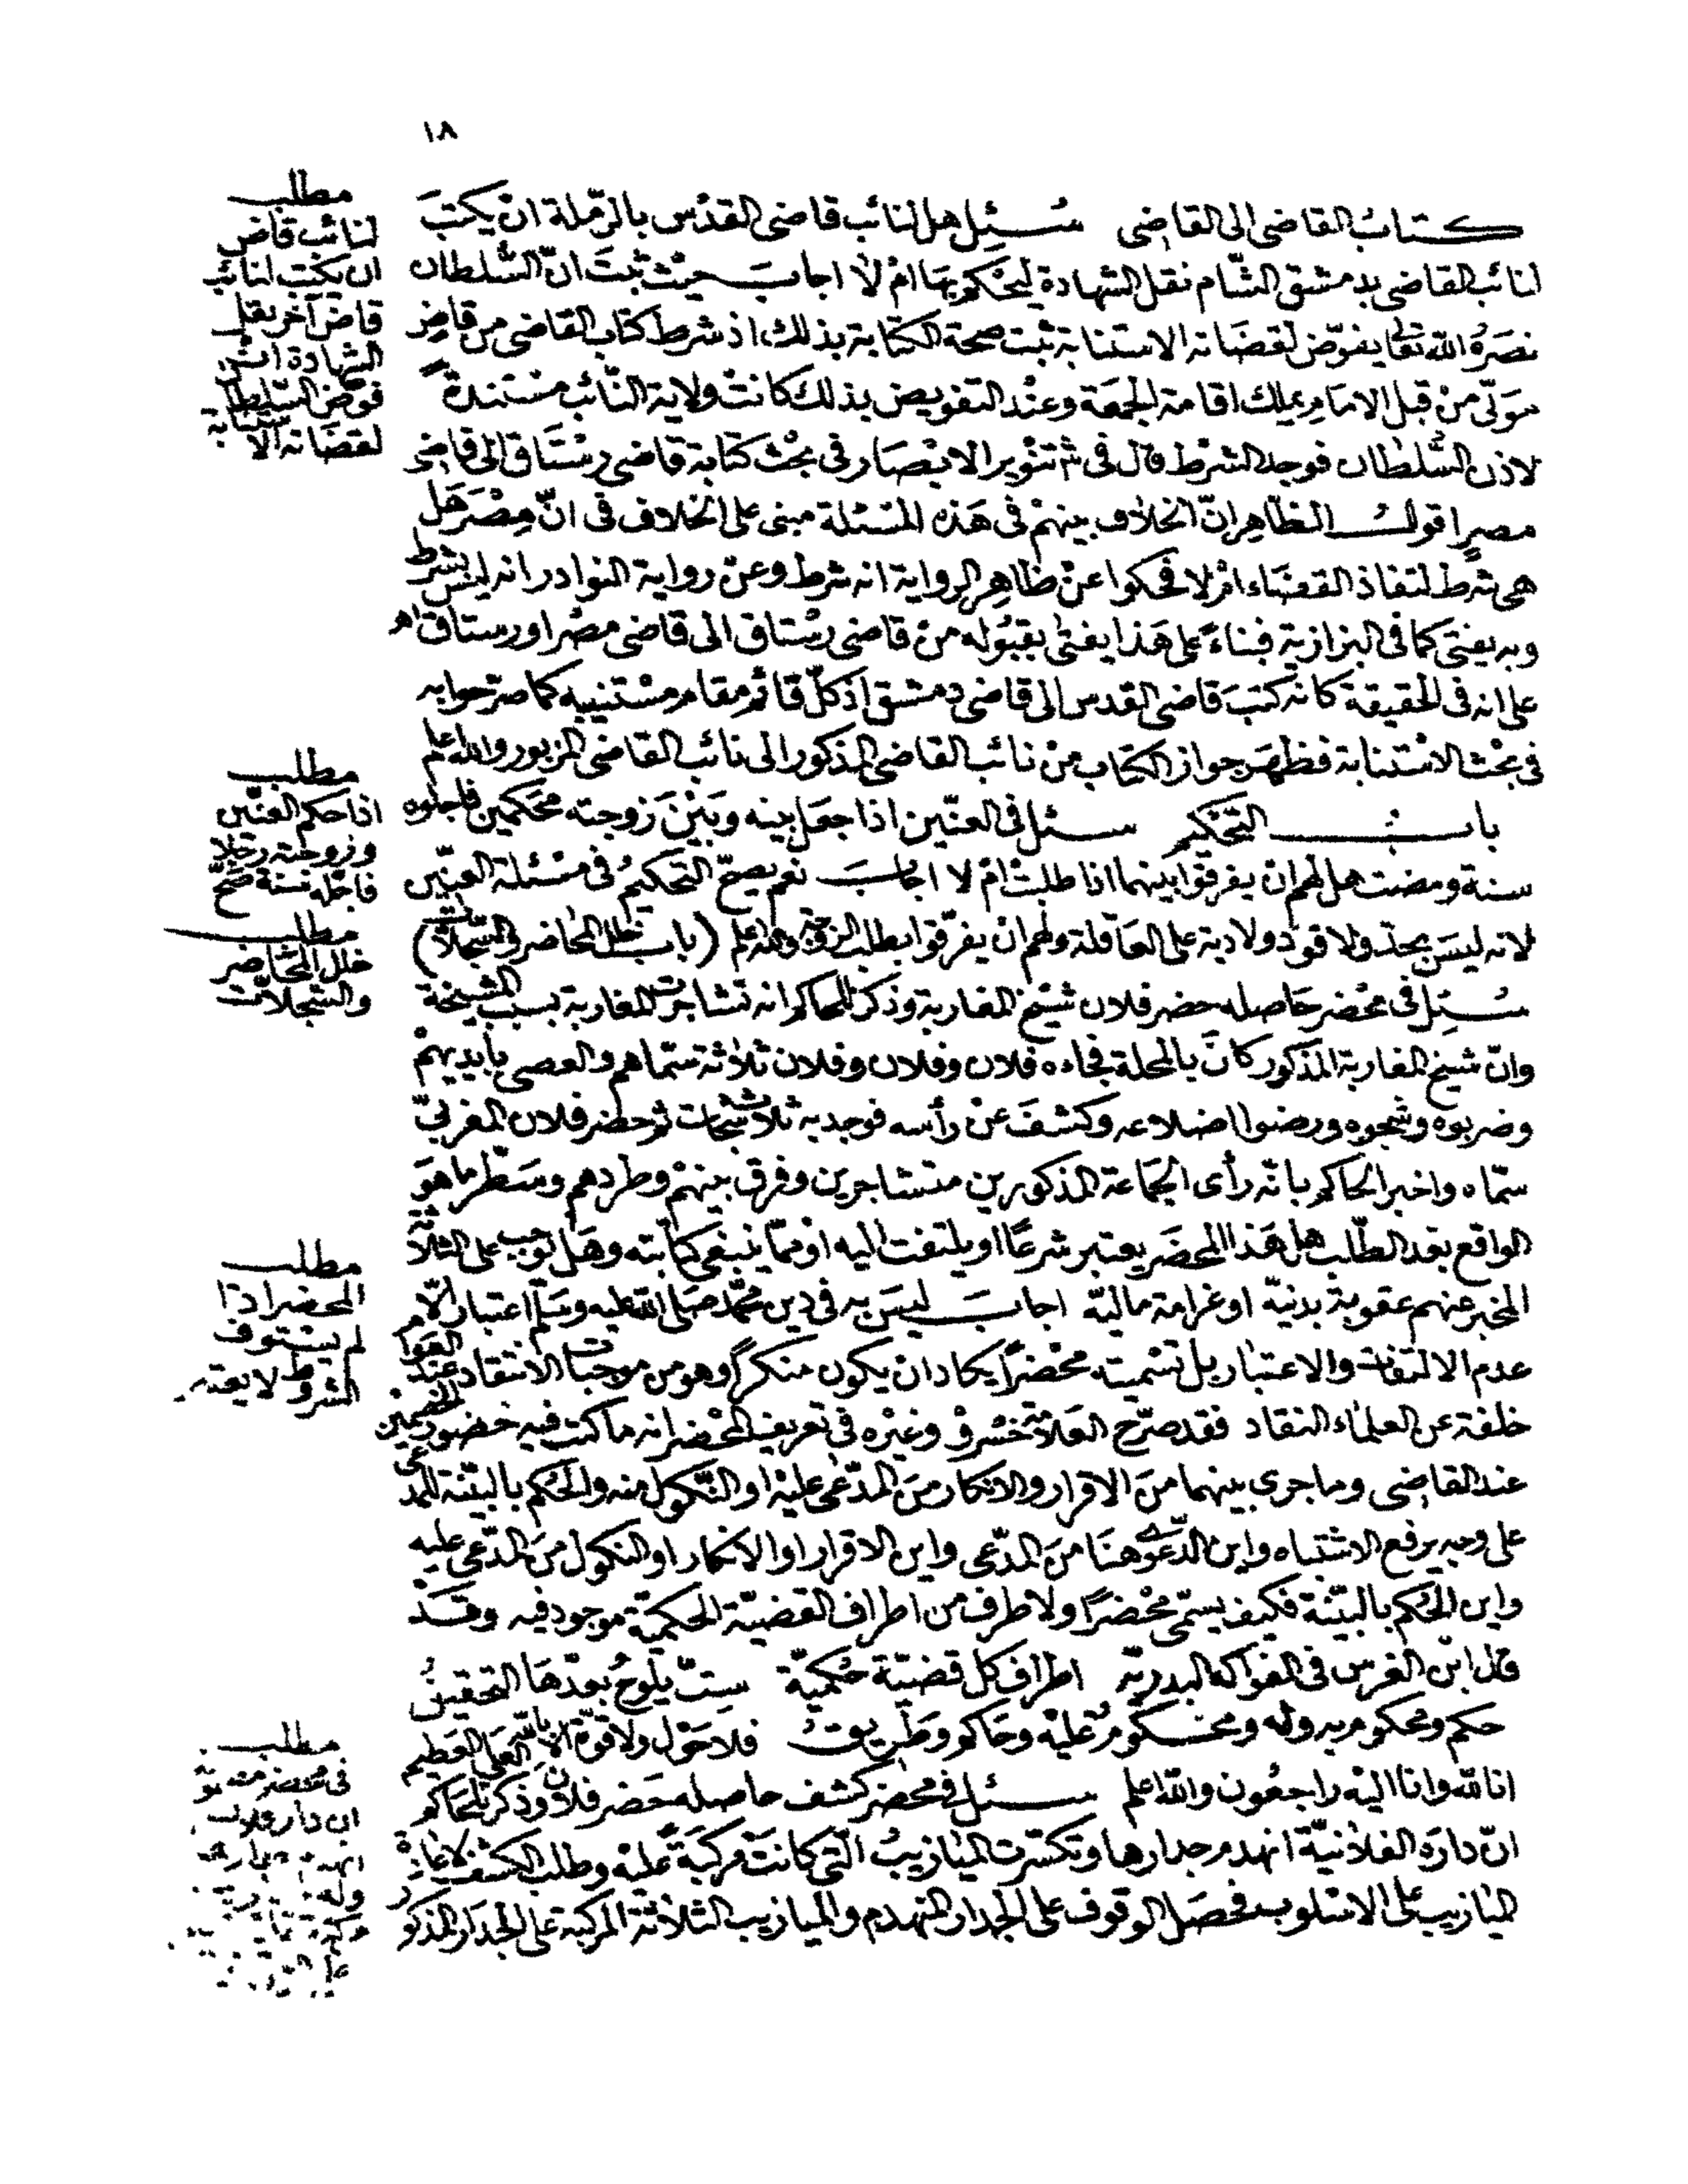 ١٨
كتاب القاضى الى القاضى سُئِل هل لنائب قاضى القدس بالرّملة ان يكتبَ
لنائب القاضى بدمشق الشّام نقل الشهادة ليحْكم بهَا امْ لا اجابَ حيْث ثبتَ انّ السُّلطان
نصَرهُ الله تعا يفوّض لقضَاته الاستنابة ثبت صحة الكتابة بذلك اذ شرط كتاب القاضى من قاض
مولّى منْ قبل الامام يملك اقامة الجمعَة وعنْد التفويض بذلك كانتْ ولاية النّائب مسْتندة
لاذن السُّلطان فوجد الشرْط قال فى ش تنْوير الابْصَار فى بحْث كتابة قاضى رسْتَاق الى قاضى
مصرٍ اقول الظاهِر انّ الخلاف بينهمْ فى هَذه المسْئلة مبنى على الخلاف فى انّ المِصْرَ هَل
هى شرط لنفاذ القضَاء امْ لا فحكوا عنْ ظاهِر الرواية انه شرط وعنْ رواية النوادر انه ليسَ بشرط
وبه يفتى كما فى البزازية فبناءً على هَذا يفتى بقبُوله منْ قاضى رسْتاق الى قاضى مصْر او رستاق اه
على انه فى الحقيقة كانّه كتبَ قاضى القدس الى قاضى دمشق اذ كلّ قائم مقام مسْتنيبه كما صرّحوا به
فى بحْث الاسْتنابة فظهَر جواز الكتاب منْ نائب القاضى المذكور الى نائب القاضى المزبور والله اعلم
باب التّحكيم سئل فى العنّين اذا جعَل بينه وبَيْنَ زوجته محَكمين فاجلوه
سنة ومضت هل لهم انْ يفرقوا بينهما اذا طلبتْ امْ لا اجَابَ نعَم يصحّ التحكيمُ فى مسْئلة العنّين
لانه ليسَ بحدّ ولا قود ولا دية على العَاقلة ولهم انْ يفرّقوا بطلب الزوجة والله اعلم (باب خلل المحاضر والسّجلات)
سُئِل فى محْضر حَاصله حضر فلان شيْخ المغاربة وذكر للحاكم انه تشاجرت المغاربة بسبب المشيخة
وانّ شيخ المغاربة المذكور كانَ بالمحلة فجاءه فلان وفلان وفلان ثلاثة سمّاهم والعصى بايديهمْ
وضربوه وشجوه ورضوا اضلاعه وكشفَ عنْ رأسه فوجد به ثلاث شجات ثم حضر فلان المغربىّ
سمّاه واخبر الحاكم بانّه رأى الجمَاعة المذكورين متشاجرَين وفرق بينهمْ وطردهم وسَطّر ما هوَ
الواقع بعْد الطّلب هل هَذا المحضَر يعتبر شرعًا او يلتفت اليه اوْ ممّا ينبغى كتابته وهَل توجب على الثلاثة
المخبر عنهم عقوبة بدنيّة او غرامة ماليّة اجابَ ليسَ به فى دين محمّد صَلى الله عليه وسَلم اعتبار الّا
عدم الالتفات والاعتبار بل تسْميته محْضرًا يكاد ان يكون منكرًا وهو من موجبات الانتقاد عنْد
خلفة عن العلماء النقاد فقد صرّح العَلامة خسْروْ وغيْره فى تعريف المحْضر انه ما كتب فيه حضور الخصْمين
عند القاضى وما جرى بينهما منَ الاقرار والانكار منَ المدّعى عليْه او النّكول منه والحُكم بالبيّنة للمدعى
على وجه يرفع الاشتباه واين الدّعوى هنَا منَ المدّعى واين الاقرار او الانكار او النكول منَ المدّعى عليه
واين الحُكم بالبيّنة فكيف يسمّى محْضرًا ولا طرف من اطراف القضيّة الحكميّة موجود فيه وقَدْ
قال ابْن الغرس فى الفواكه البدريّه اطراف كل قضيّة حُكميّة ستّ يلوحُ بعدّهَا التحقيقُ
حكم ومحكوم به وله ومحكومُ عليْه وحَاكم وطَريقُ فلا حَوْل ولا قوّة الا بالله العَلى العَظيم
انا لله وانا اليْه راجعُون والله اعلم سئل فى محضر كشف حاصله حَضر فلان وذكر للحَاكم
انّ دارَه الفلانيّة انهدم جدارها وتكسّرت الميَازيبُ الّتى كانتْ مركبَة عَليْه وطلب الكشف لاعَادة
الميَازيب على الاسْلوب فحصَل الوقوف على الجدار المنهدم والميازيب الثلاثة المركبة على الجدَار المذكور
مطلب
لنائب قاض
ان يكتب لنائب
قاض آخر بنقل
الشهادة ان
فوّض السّلطا
لقضَاته الاستنابة
مطلب
اذا حكم العنّين
وزوجته رجلا
فاجّله سنة صحّ
مطلب
خلل المحَاضر
والسّجلات
مطلب
المحضر اذا
لم يستوف
الشروط لا يعتبر
مطلب
فى محضر
ان دار فلان